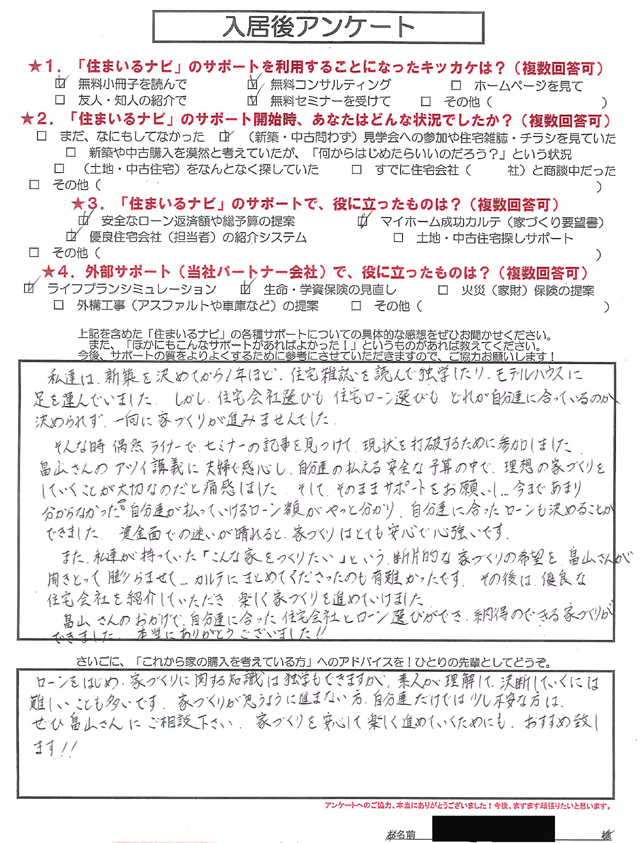 入居後アンケート
★1．「住まいるナビ」のサポートを利用することになったキッカケは？（複数回答可）
☑ 無料小冊子を読んで ☑ 無料コンサルティング □ ホームページを見て
□ 友人・知人の紹介で ☑ 無料セミナーを受けて □ その他（ ）
★2．「住まいるナビ」のサポート開始時、あなたはどんな状況でしたか？（複数回答可）
□ まだ、なにもしてなかった ☑ （新築・中古問わず）見学会への参加や住宅雑誌・チラシを見ていた
□ 新築や中古購入を漠然と考えていたが、「何からはじめたらいいのだろう？」という状況
□ （土地・中古住宅）をなんとなく探していた □ すでに住宅会社（ 社）と商談中だった
□ その他（ ）
★3．「住まいるナビ」のサポートで、役に立ったものは？（複数回答可）
☑ 安全なローン返済額や総予算の提案 ☑ マイホーム成功カルテ（家づくり要望書）
☑ 優良住宅会社（担当者）の紹介システム □ 土地・中古住宅探しサポート
□ その他（ ）
★4．外部サポート（当社パートナー会社）で、役に立ったものは？（複数回答可）
☑ ライフプランシミュレーション ☑ 生命・学資保険の見直し □ 火災（家財）保険の提案
□ 外構工事（アスファルトや車庫など）の提案 □ その他（ ）
上記を含めた「住まいるナビ」の各種サポートについての具体的な感想をぜひお聞かせください。
また、「ほかにもこんなサポートがあればよかった！」というものがあれば教えてください。
今後、サポートの質をよりよくするために参考にさせていただきますので、ご協力お願いします！
私達は、新築を決めてから1年ほど、住宅雑誌を読んで独学したり、モデルハウスに
足を運んでいました。しかし、住宅会社選びも住宅ローン選びも どれが自分達に合っているのか
決められず、一向に家づくりが進みませんでした。
そんな時 偶然 ライナーで、セミナーの記事を見つけて、現状を打破するために参加しました。
畠山さんのアツイ講義に夫婦で感心し、自分達の払える安全な予算の中で、理想の家づくりを
していくことが大切なのだと痛感しました。そして、そのままサポートをお願いし…今まであまり
分からなかった"自分達が払っていけるローン額"がやっと分かり、自分達に合ったローンも決めることが
できました。資金面での迷いが晴れると、家づくりはとても安心で心強いです。
また、私達が持っていた「こんな家をつくりたい」という、断片的な家づくりの希望を、畠山さんが
聞きとって 膨らませて…カルテにまとめてくださったのも有難かったです。その後は、優良な
住宅会社を紹介していただき、楽しく家づくりを進めていけました。
畠山さんのおかげで、自分達に合った住宅会社とローン選びができ、納得のできる家づくりが
できました。本当にありがとうございました!!
さいごに、「これから家の購入を考えている方」へのアドバイスを！ひとりの先輩としてどうぞ。
ローンをはじめ、家づくりに関する知識は独学もできますが、素人が理解して、決断していくには
難しいことも多いです。家づくりが思うように進まない方、自分達だけでは少し不安な方は、
ぜひ畠山さんにご相談下さい。家づくりを安心して楽しく進めていくためにも、おすすめ致し
ます!!
アンケートへのご協力、本当にありがとうございました！今後、ますます頑張りたいと思います。
お名前 様